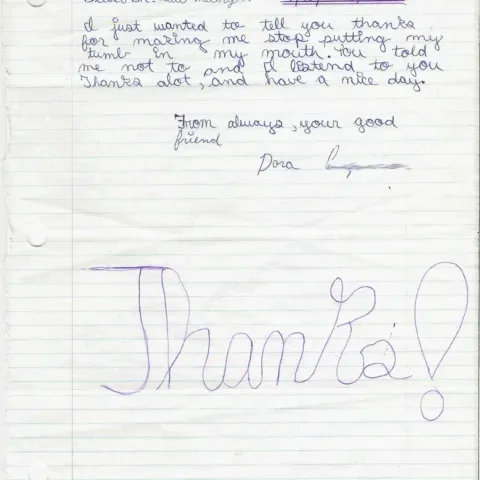 I just wanted to tell you thanks
for making me stop putting my
tumb in my mouth. You told
me not to and I listend to you
Thanks alot, and have a nice day.
From always, your good
friend
Dora
Thanks!